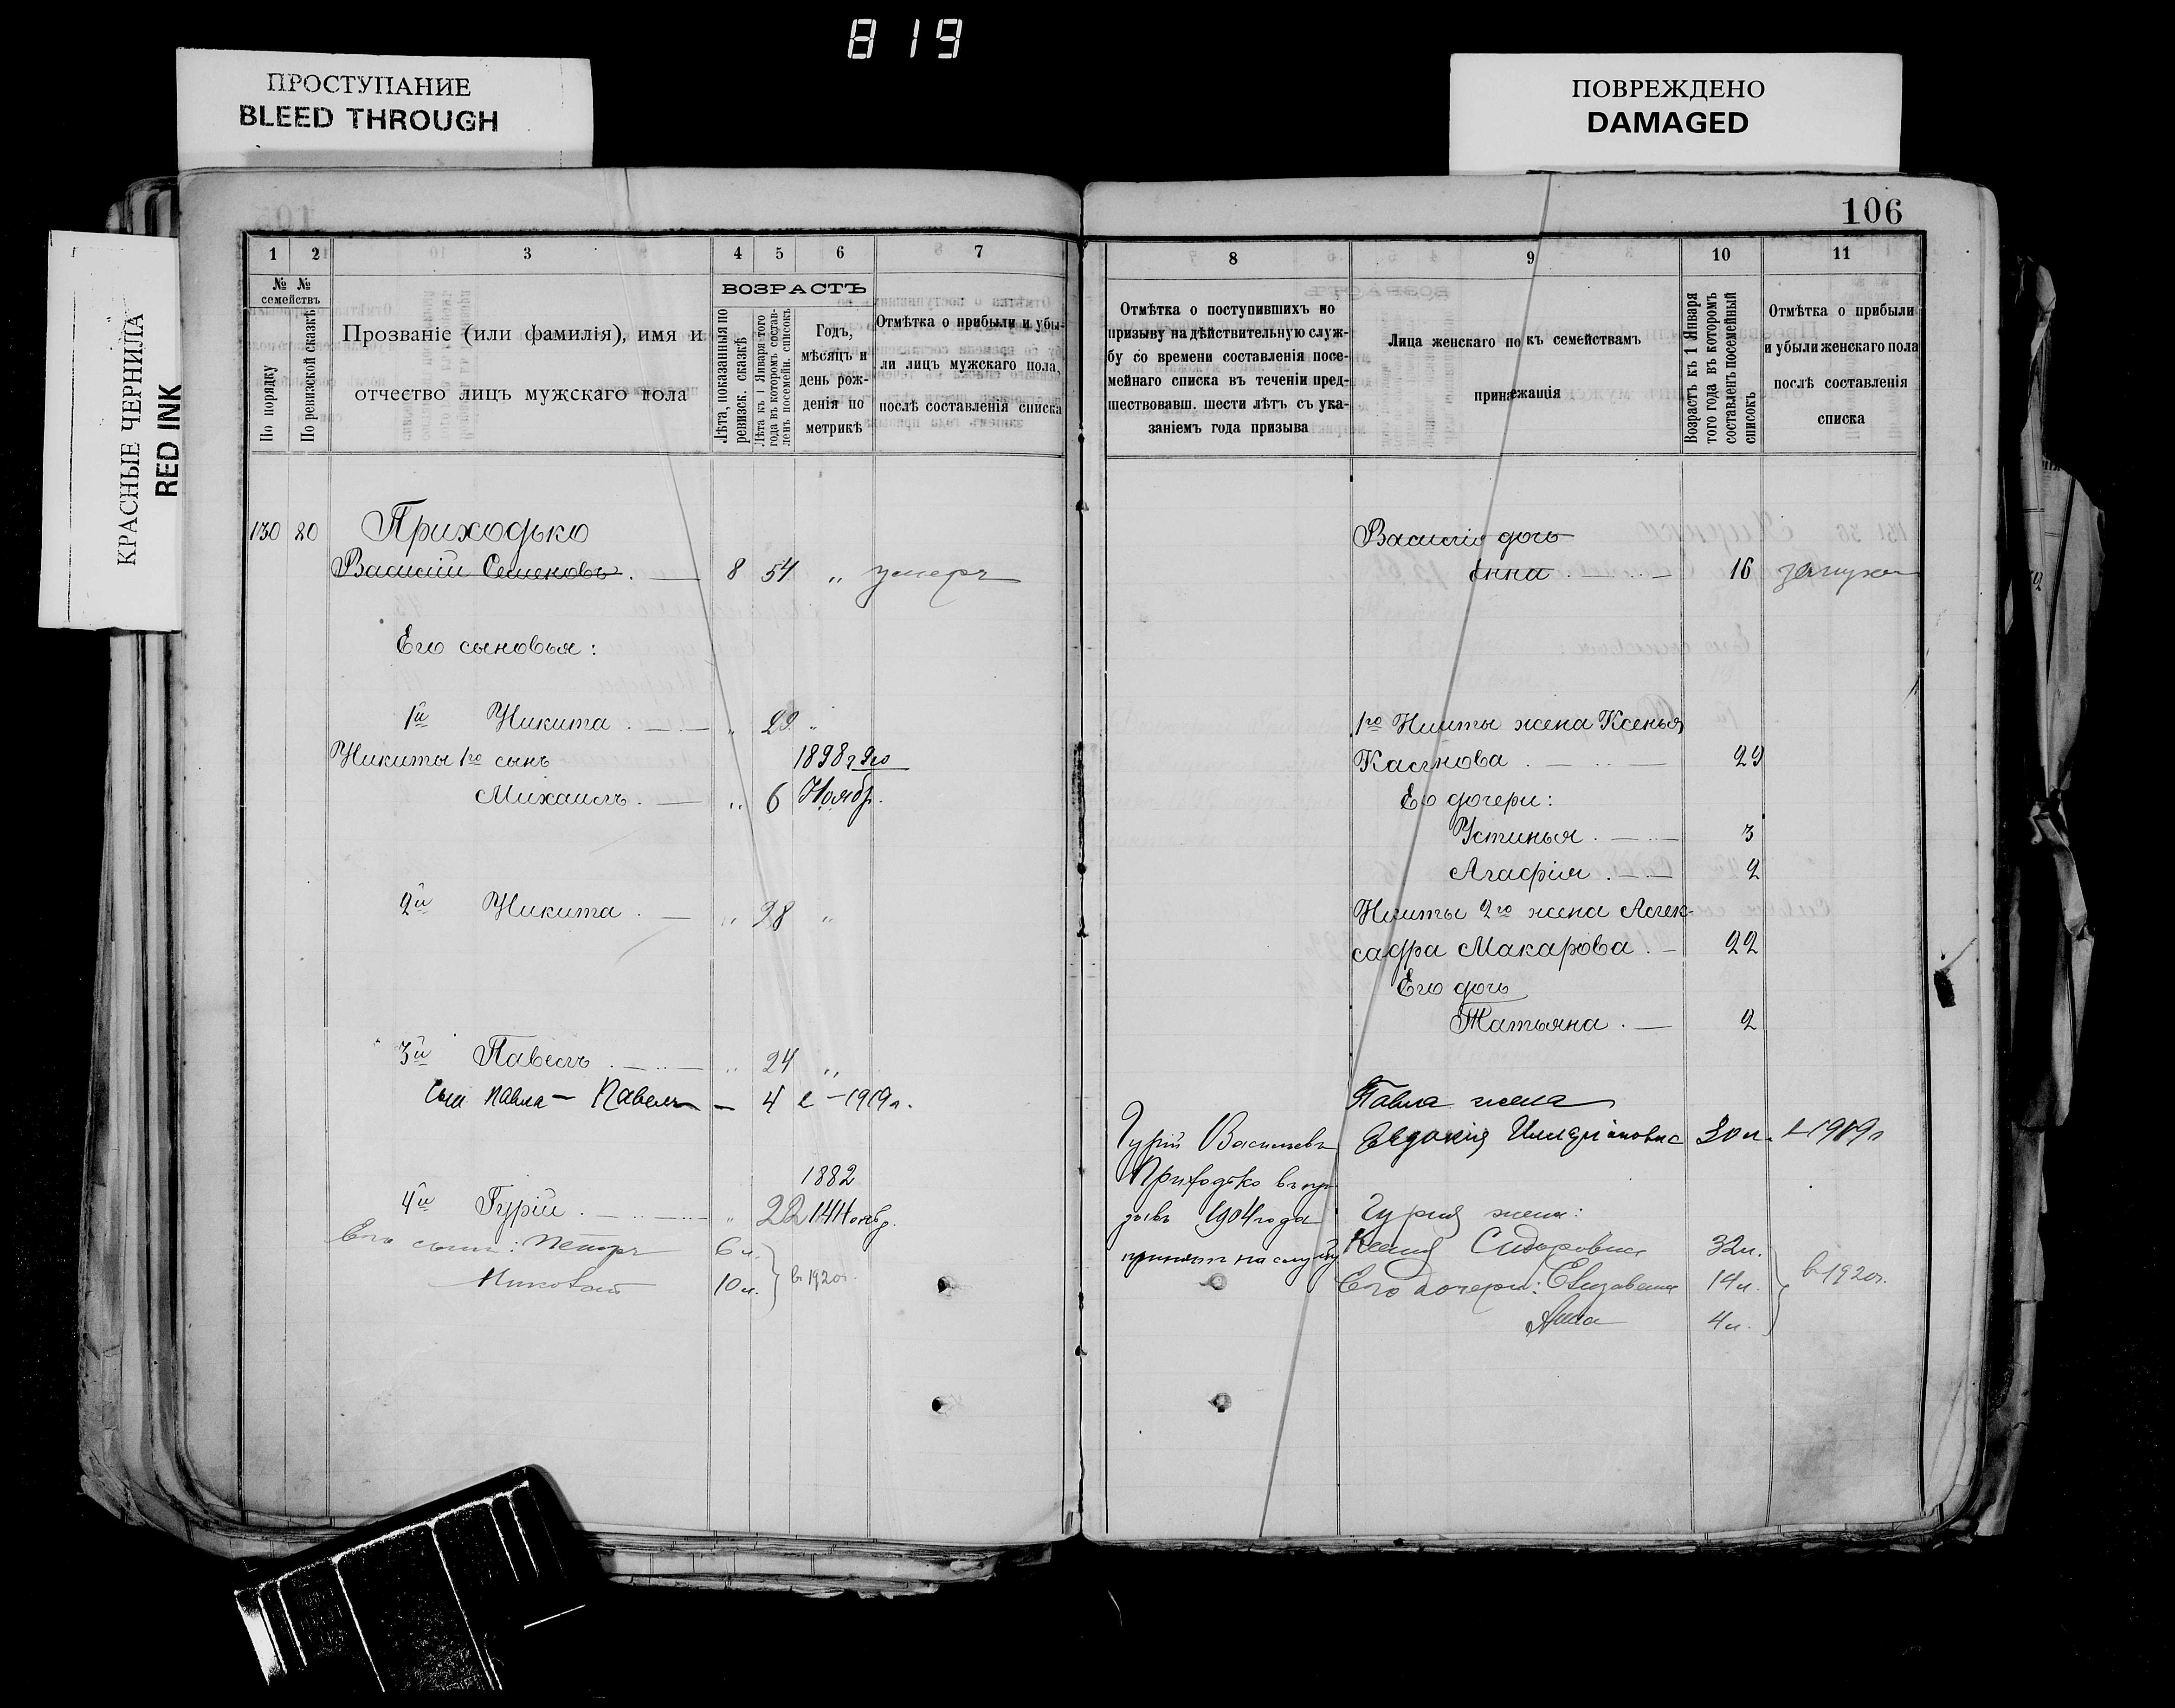 819
ПРОСТУПАНИЕ
BLEED THROUGH
ПОВРЕЖДЕНО
DAMAGED
КРАСНЫЕ ЧЕРНИЛА
RED INK
106
1 2 3 4 5 6 7
№ № семействъ
По порядку
По ревизской сказкѣ
Прозваніе (или фамилія), имя и
отчество лицъ мужскаго пола
ВОЗРАСТЪ
Лѣта, показанныя по
ревизск. сказкѣ
Лѣта къ 1 Января того
года въ которомъ состав-
ленъ посемейн. списокъ
Годъ,
мѣсяцъ и
день рож-
денія по
метрикѣ
Отмѣтка о прибыли и убы-
ли лицъ мужскаго пола,
послѣ составленія списка
130 20 Приходько
Василій Семеновъ. 8 54 „ умеръ
Его сыновья:
1й Никита . „ 29 „
Никиты 1го сынъ 1898 г 9го
Михаилъ. „ 6 Ноябр.
2й Никита . „ 28 „
3й Павелъ „ 24 „
Сын Павла — Павелъ — 4 — 1919г.
1882
4й Гурій . „ 22 14 Ноябр.
Его сыны: Петръ 6 л.
Николай 10 л. в 1920г.
8 9 10 11
Отмѣтка о поступившихъ по
призыву на дѣйствительную служ-
бу со времени составленія посе-
мейнаго списка въ теченіи пред-
шествовавш. шести лѣтъ съ ука-
заніемъ года призыва
Лица женскаго по къ семействамъ
принаежащія
Возрастъ къ 1 Января
того года въ которомъ
составленъ посемейный
списокъ
Отмѣтка о прибыли
и убыли женскаго пола
послѣ составленія
списка
Василія дочь
Анна . 16 замужем
1го Никиты жена Ксенья
Касянова . 29
Его дочери:
Устинья . 3
Агафія . 2
Никиты 2го жена Алек-
сандра Макарова . 22
Его дочь
Татьяна . 2
Павла жена
Евдокія 30 л.
Гурій Васильевъ
Приходько въ при-
зывъ 1904 года
принятъ на службу
Гурія жена:
Ксенія Сидоровна 32 л.
Его дочери: Елизавета 14 л. в 1920г.
Анна 4 л.